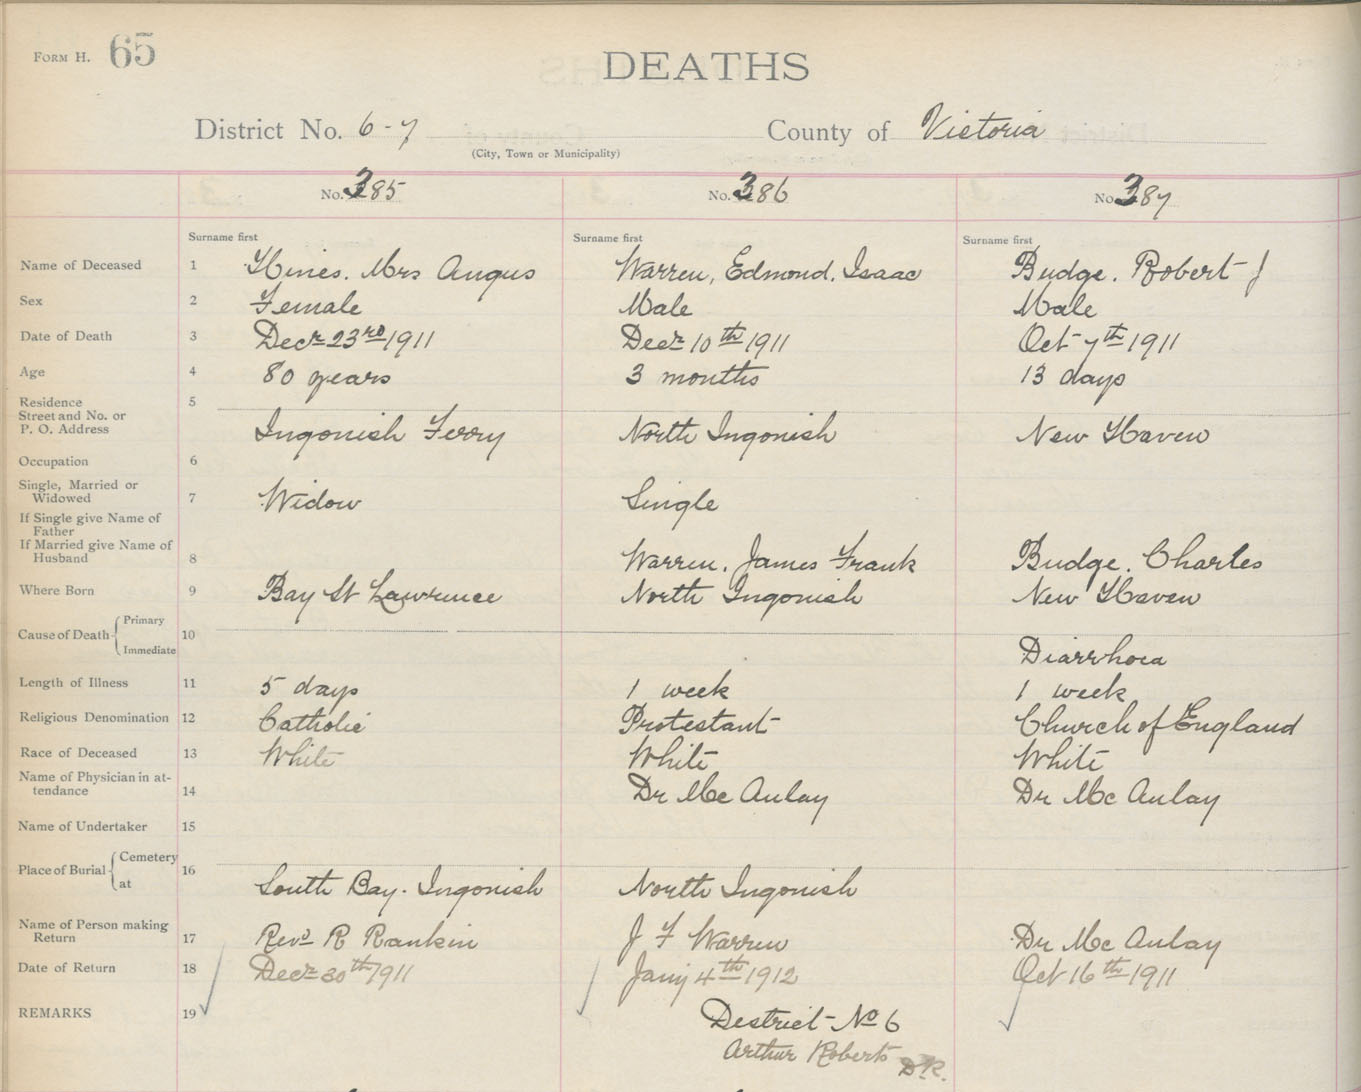 FORM H. 65
DEATHS
District No. 6-7 County of Victoria
(City, Town or Municipality)
No. 385 No. 386 No. 387
Surname first Surname first Surname first
Name of Deceased 1 Hines. Mrs Angus Warren, Edmond. Isaac Budge. Robert J
Sex 2 Female Male Male
Date of Death 3 Decr 23rd 1911 Decr 10th 1911 Oct 7th 1911
Age 4 80 years 3 months 13 days
Residence 5
Street and No. or
P. O. Address Ingonish Ferry North Ingonish New Haven
Occupation 6
Single, Married or
Widowed 7 Widow Single
If Single give Name of
Father
If Married give Name of
Husband 8 Warren, James Frank Budge. Charles
Where Born 9 Bay St Lawrence North Ingonish New Haven
Cause of Death Primary 10
Immediate Diarrhoea
Length of Illness 11 5 days 1 week 1 week
Religious Denomination 12 Catholic Protestant Church of England
Race of Deceased 13 White White White
Name of Physician in at-
tendance 14 Dr Mc Aulay Dr Mc Aulay
Name of Undertaker 15
Place of Burial Cemetery 16
at South Bay. Ingonish North Ingonish
Name of Person making
Return 17 Revd R Rankin J F Warren Dr Mc Aulay
Date of Return 18 Decr 30th 1911 Jany 4th 1912 Oct 16th 1911
REMARKS 19 District No 6
Arthur Roberts D.R.